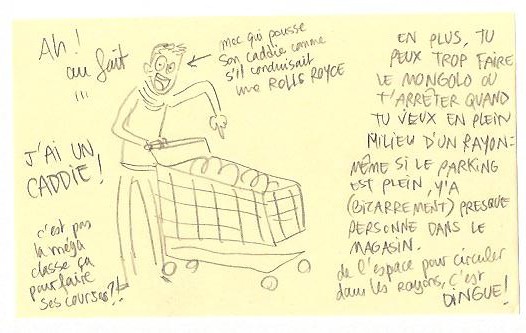 Ah!
au fait
!!!
mec qui pousse
son caddie comme
s'il conduisait
une ROLLS ROYCE
J'AI UN
CADDIE!
c'est pas
la méga
classe ça
pour faire
ses courses?!
EN PLUS, TU
PEUX TROP FAIRE
LE MONGOLO OU
T'ARRÊTER QUAND
TU VEUX EN PLEIN
MILIEU D'UN RAYON:
MÊME SI LE PARKING
EST PLEIN, Y'A
(BIZARREMENT) PRESQUE
PERSONNE DANS LE
MAGASIN.
de l'espace pour circuler
dans les rayons, c'est
DINGUE!